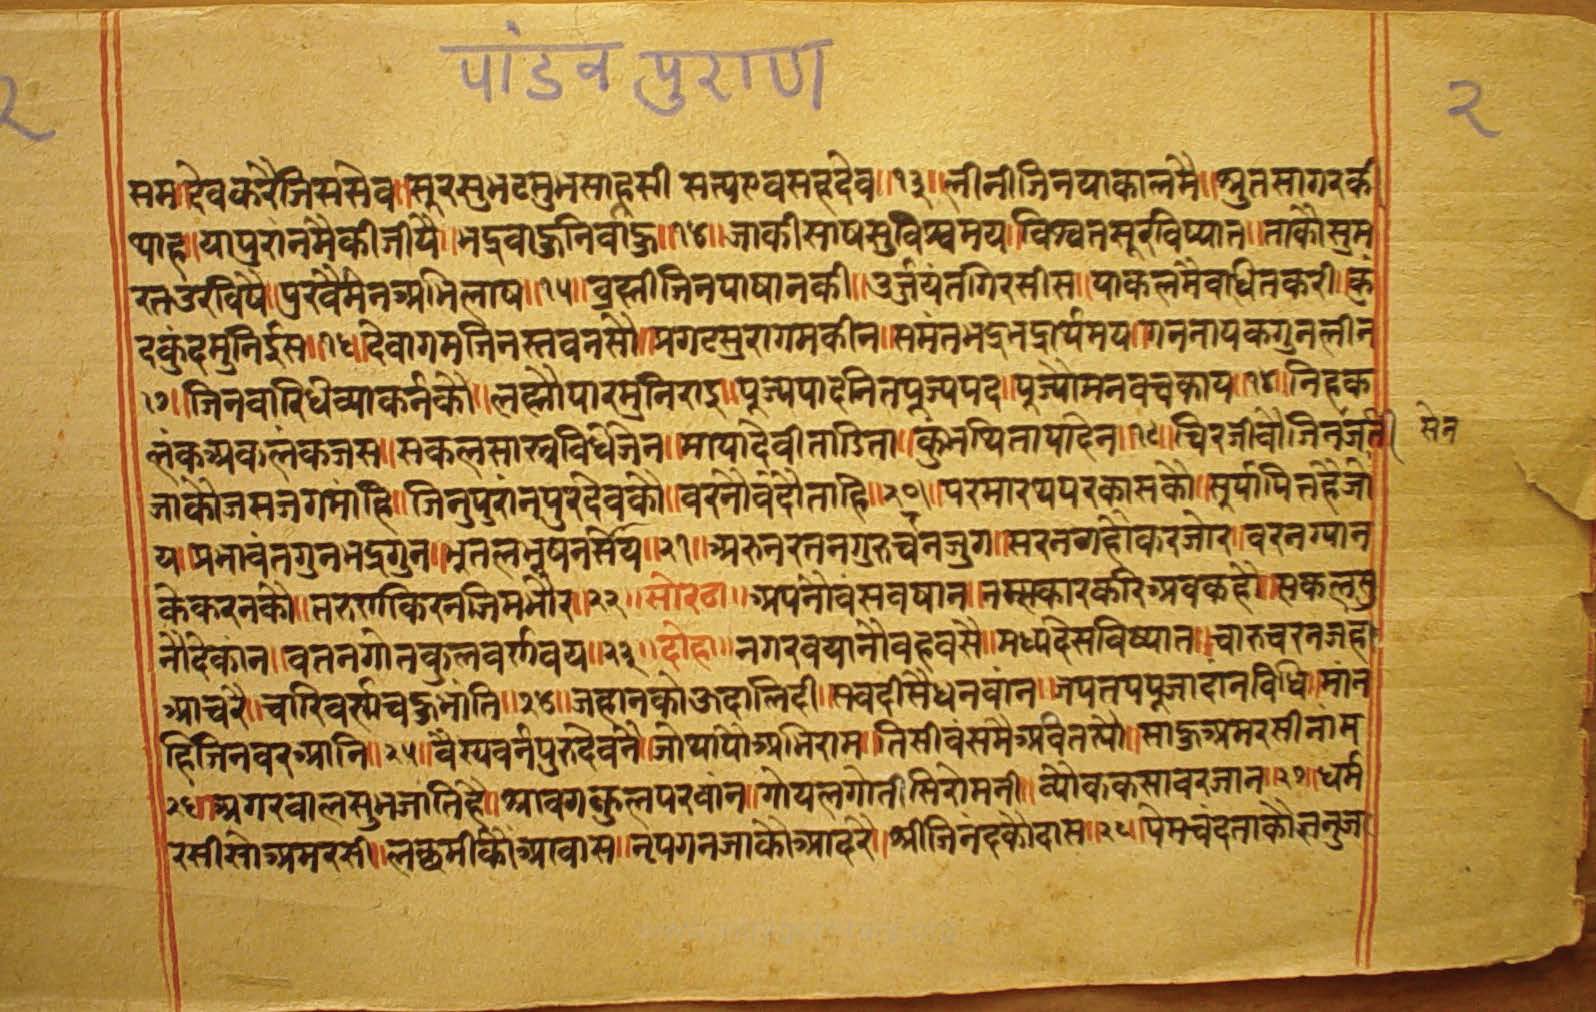 पांडव पुराण
२ २
सम॥देवकरैजिससेव॥सूरसुभटसुभसाहसी सत्यएवसहदेव॥१३॥लीनीजिनयाकालमै॥श्रुतसागरकी
थाह॥यापुरांनमैकीजीयै॥भद्रवाहुनिर्वाहु॥१४॥जाकीसाषसुविश्वमय॥विश्वतसूरविष्यात॥ताकौसुम
रनउरविषै॥पुरवैमनअभिलाष॥१५॥व्रह्मीजिनपाषानकी॥उर्जयंतगिरसीस॥याकलमैवाधितकरी॥कुं
दकुंदमुनिईस॥१६॥देवागमजिनस्तवनसौ॥प्रगटसुरागमकीन॥समंतभद्रभद्रार्थमय॥गननायकगुनलीन
१७॥जिनवारिधव्याकर्नकौ॥लह्यौपारमुनिराइ॥पूज्यपादनितपूज्यपद॥पूज्यौमनवचकाय॥१८॥निहक
लंकअकलंकजस॥सकलसास्त्रविधजेन॥मायादेवीताडिता॥कुंभथितापादेन॥१९॥चिरजीवौजिनजती सेन
जाकौजसजगमांहि॥जिनुपुरांनपुरदेवकौ॥वरनौवंदौताहि॥२०॥परमारथपरकासकौ॥सूर्यापितहैजो
य॥प्रभावंतगुनभद्रगुन॥भुतलभूषनसोय॥२१॥अरुनरतनगुरुचर्नजुग॥सरनगहौकरजोर॥वरनग्यान
केकरनकौ॥तरुणकिरनजिमभौर॥२२॥सोरठा॥अपनौवंसवषान॥नमस्कारकरिअवकहौ॥सकलसु
नौदेकांन॥वतनगोतकुलवर्णवय॥२३॥दोहा॥नगरवयानौवहवसै॥मध्यदेसविष्यात॥चारुचरनजहा
आचरै॥चारिवर्णचहुभांति॥२४॥जहानकोऊदालिदी॥सवदीसैधनवांन॥जपतपपूजादांनविधि॥मांन
हिजिनवरआनि॥२५॥वैस्यवर्नपुरुदेवनै॥जोथापोअभिराम॥तिसीवंसमैअवितस्यौ॥साहुअमरसीनांम
२६॥अगरवालसुभजातिहै॥श्रावगकुलपरवांन॥गोयलगोतीसिरोमनी॥व्योककसावरजान॥२७॥धर्म
रसीसोअमरसी॥लछमीकौआवास॥नृपगनजाकौआदरै॥श्रीजिनंदकौदास॥२८॥पेमचंदताकौतनुज